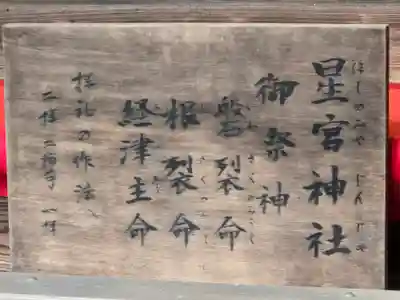 星宮神社
ほしのみやじんじゃ
御祭神
磐裂命
根裂命
経津主命
拝礼の作法、
二拝二拍手一拝